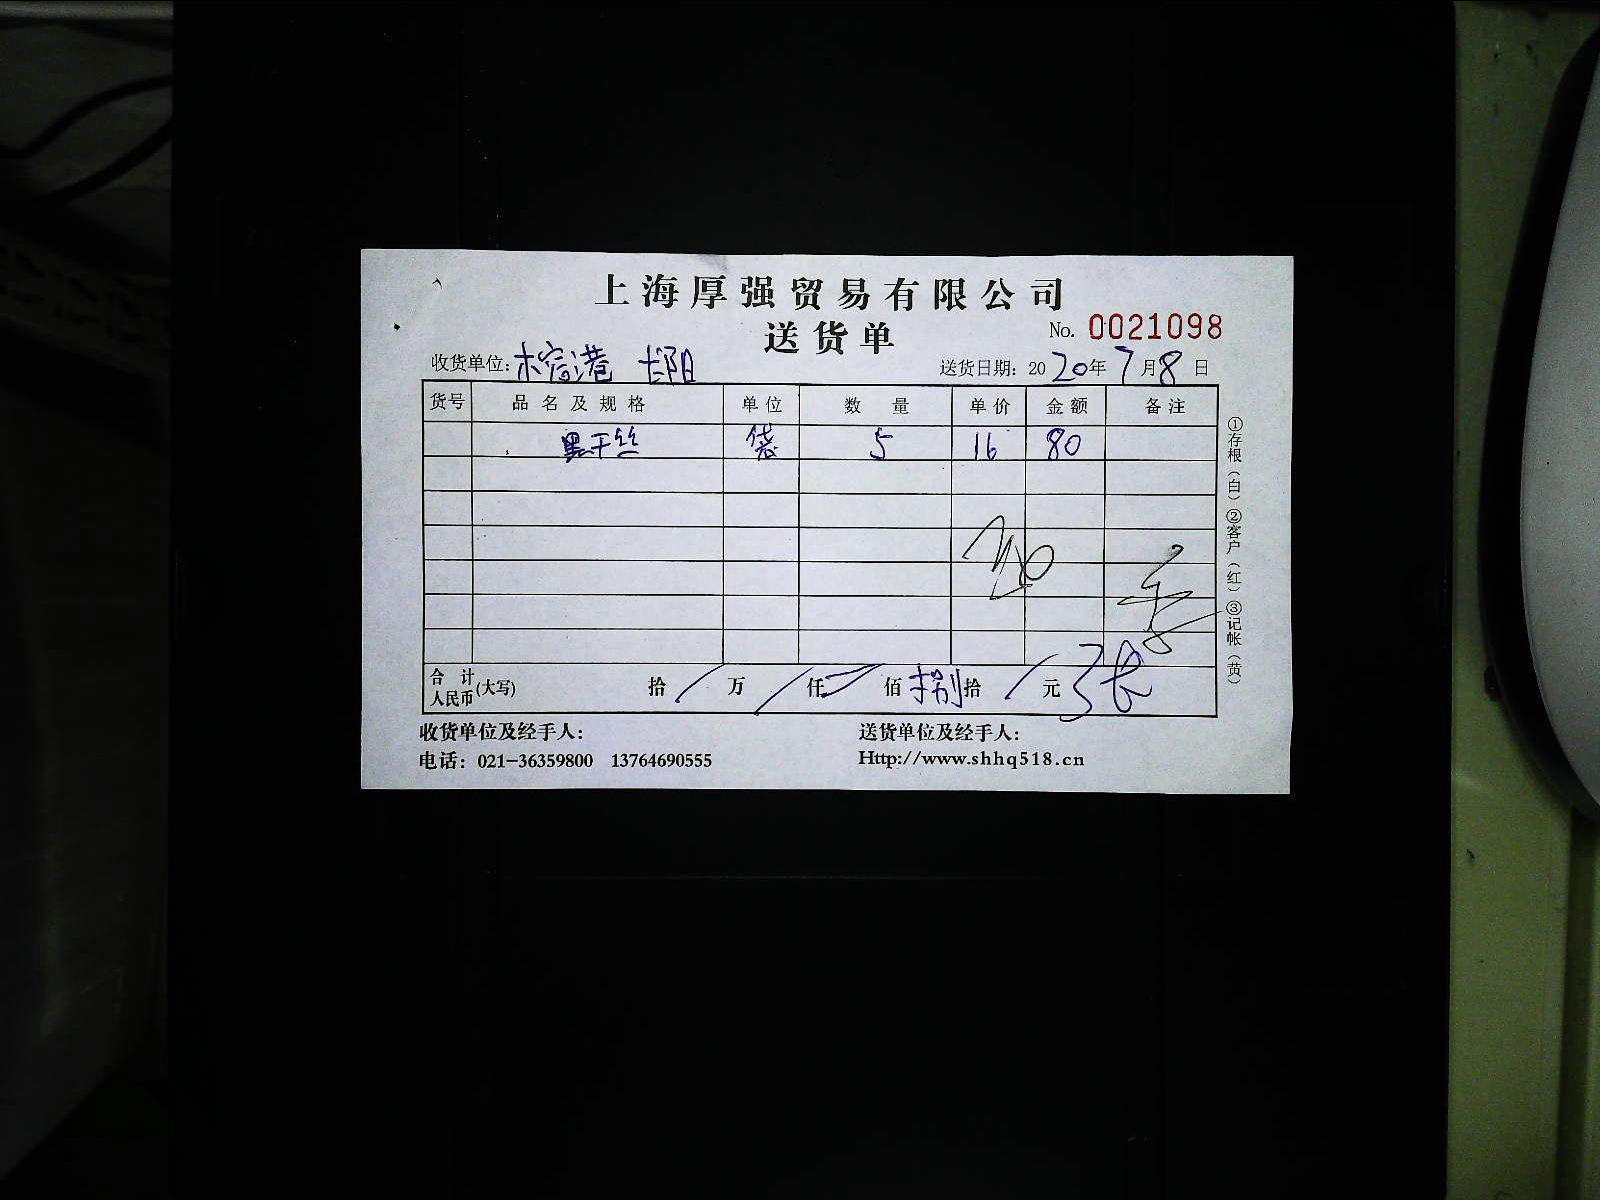 上海厚强贸易有限公司
送货单 No. 0021098
收货单位: 木窑港 长阳 送货日期: 2020年7月8日
货号 品名及规格 单位 数量 单价 金额 备注
黑干丝 袋 5 16 80
合计人民币(大写) 拾 / 万 / 仟 佰 捌拾 / 元
收货单位及经手人: 送货单位及经手人:
电话: 021-36359800 13764690555 Http://www.shhq518.cn
①存根(白) ②客户(红) ③记帐(黄)